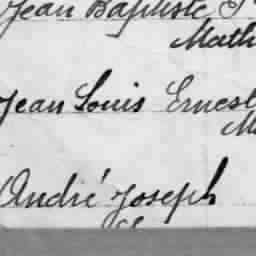 Jean Baptiste
Math
Jean Louis Ernest
André Joseph